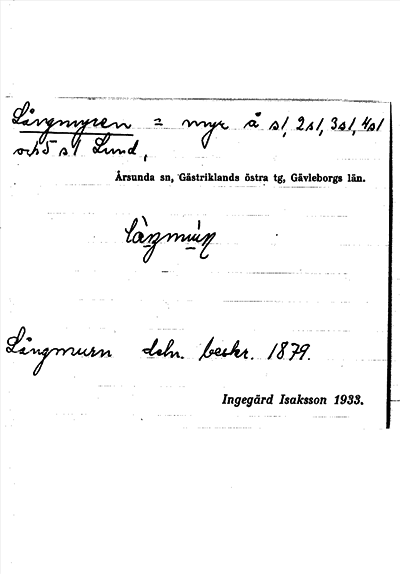 Långmyren = myr å s1, 2s1, 3s1, 4s1
och 5 s1 Lund,
Årsunda sn, Gästriklands östra tg, Gävleborgs län.
Långmurn dsbn. beskr. 1879.
Ingegärd Isaksson 1933.